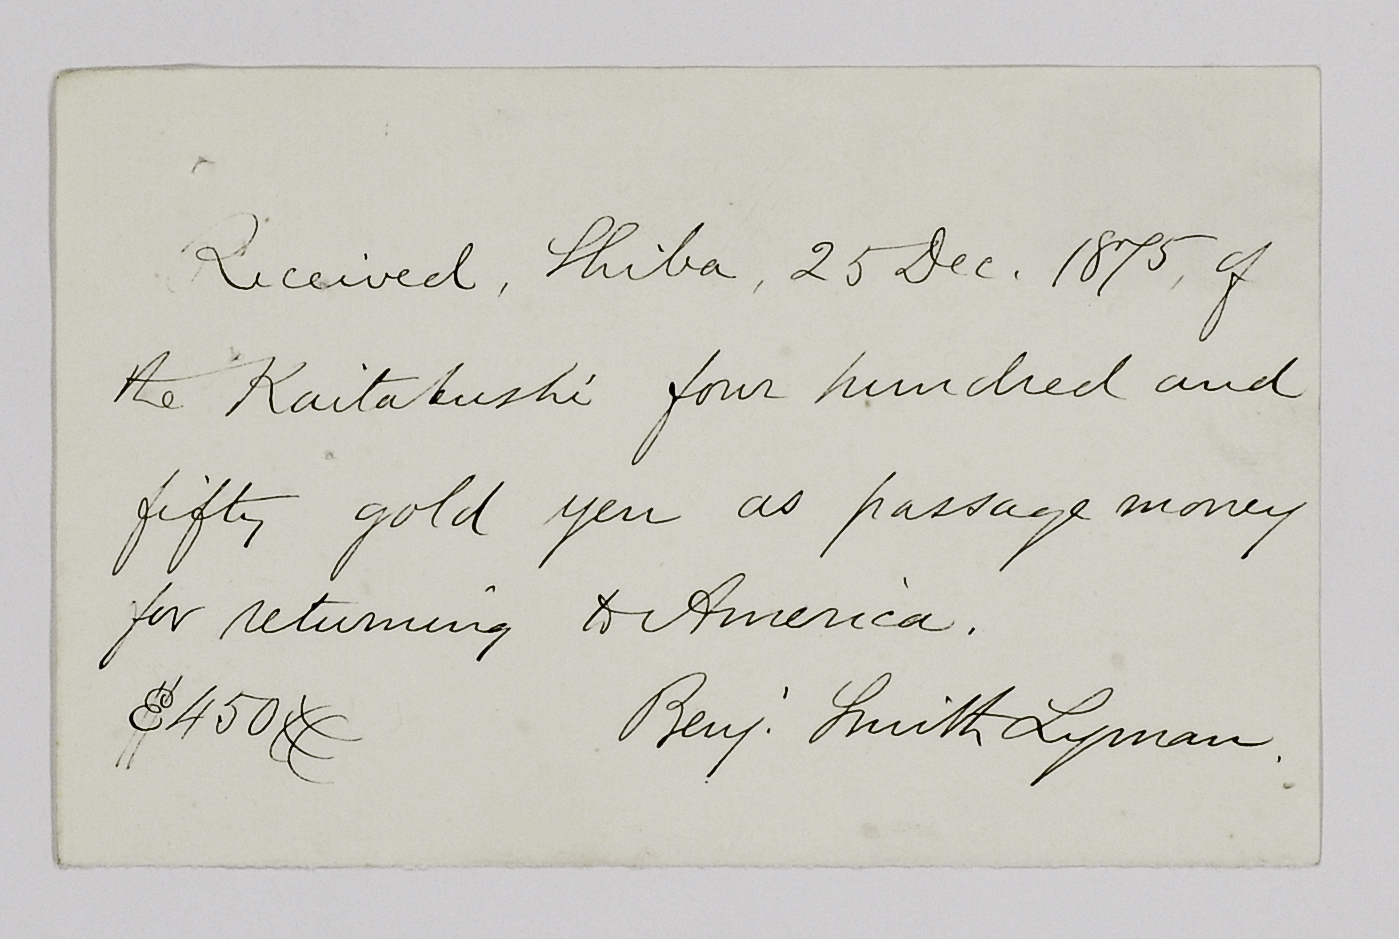 Received, Shiba, 25 Dec. 1875, of
the Kaitakushi four hundred and
fifty gold yen as passage money
for returning to America.
450
Benj. Smith Lyman.